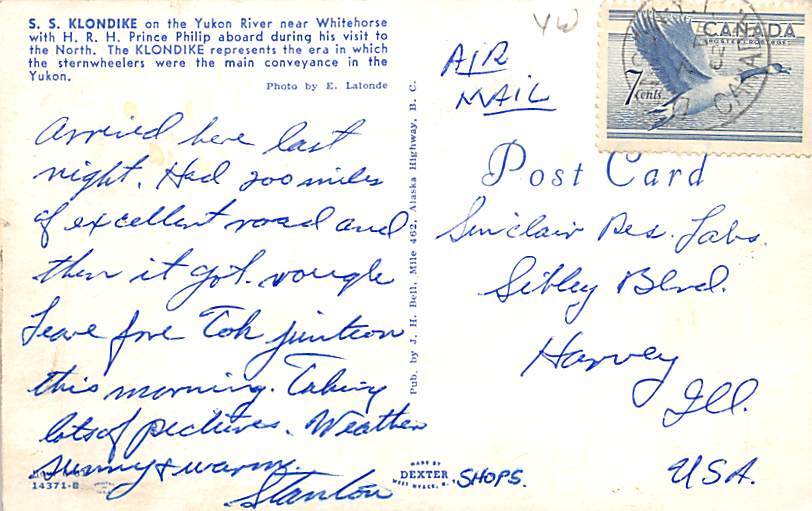 S. S. KLONDIKE on the Yukon River near Whitehorse
with H. R. H. Prince Philip aboard during his visit to
the North. The KLONDIKE represents the era in which
the sternwheelers were the main conveyance in the
Yukon.
Photo by E. Lalonde
Arrived here last
night. Had 200 miles
of excellent road and
then it got rough
Leave for Tok junction
this morning. Taking
lots of pictures. Weather
sunny & warm.
Stanton
14371-B
Pub. by J. H. Bell, Mile 462, Alaska Highway, B. C.
MADE BY
DEXTER
WEST NYACK, N.Y.
SHOPS.
YW
AIR
MAIL
CANADA
POSTES POSTAGE
7 cents
CANADA
Post Card
Sinclair Res. Labs.
Sibley Blvd.
Harvey
Ill.
USA.